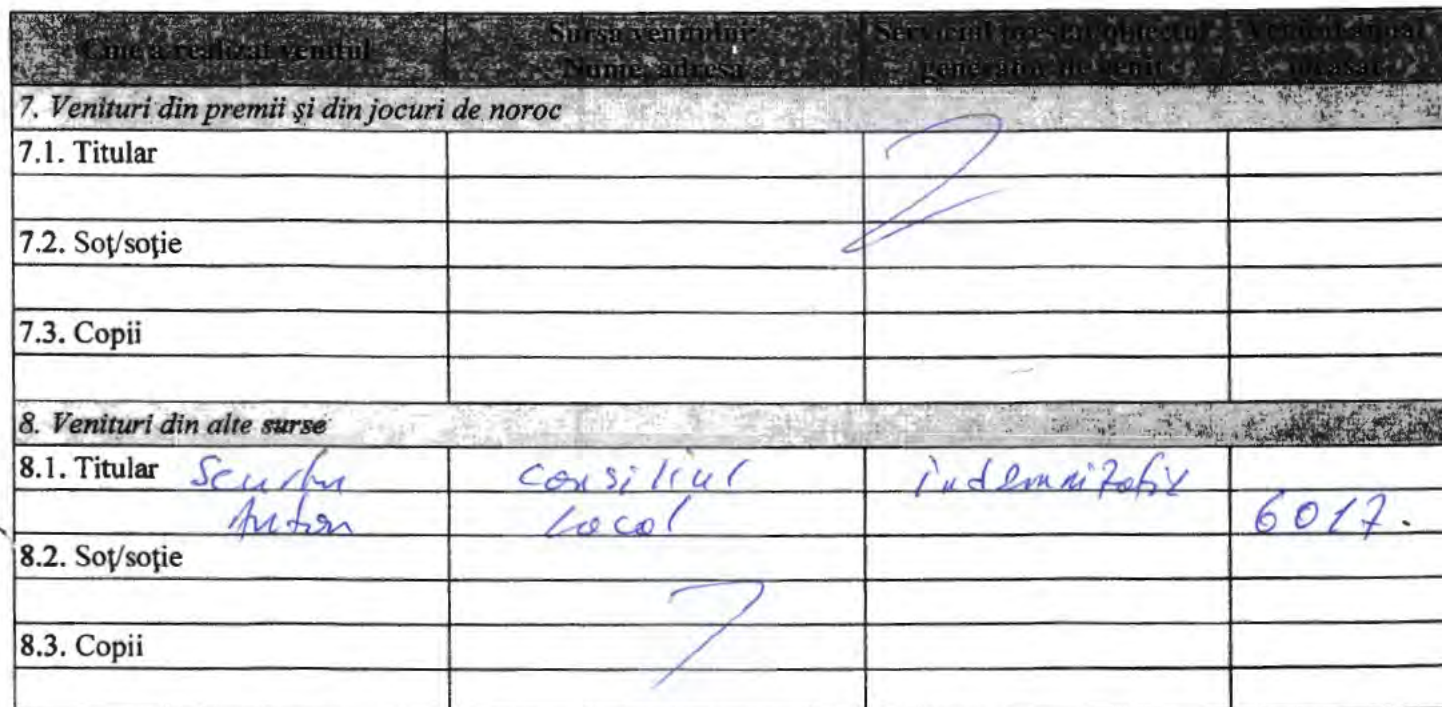 Cine a realizat venitul
Sursa venitului:
Nume, adresa
Serviciul prestat/obiectul
generator de venit
Venitul anual
încasat
7. Venituri din premii şi din jocuri de noroc
7.1. Titular
7.2. Soţ/soţie
7.3. Copii
8. Venituri din alte surse
8.1. Titular
Anton
consiliul
Local
indemnizatie
6017.
8.2. Soţ/soţie
8.3. Copii